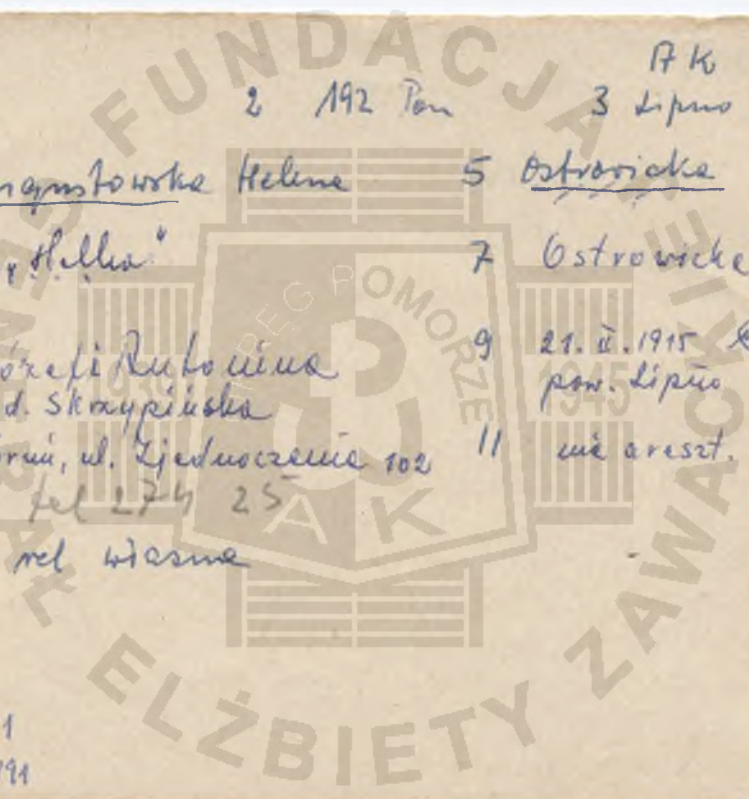 AK
2 192 Pom 3 Lipno
Helena 5 Ostrowicka
"Helka" 7 Ostrowicka
i Antonina 9 21. II. 1915
d. Skrzypińska pow. Lipno
ul. Zjednoczenia 102 11 nie areszt.
tel 274 25
rel własna
1
91
FUNDACJA
GENERAŁ
ELŻBIETY ZAWACKIEJ
OKRĘG POMORZE
1939 1945
AK